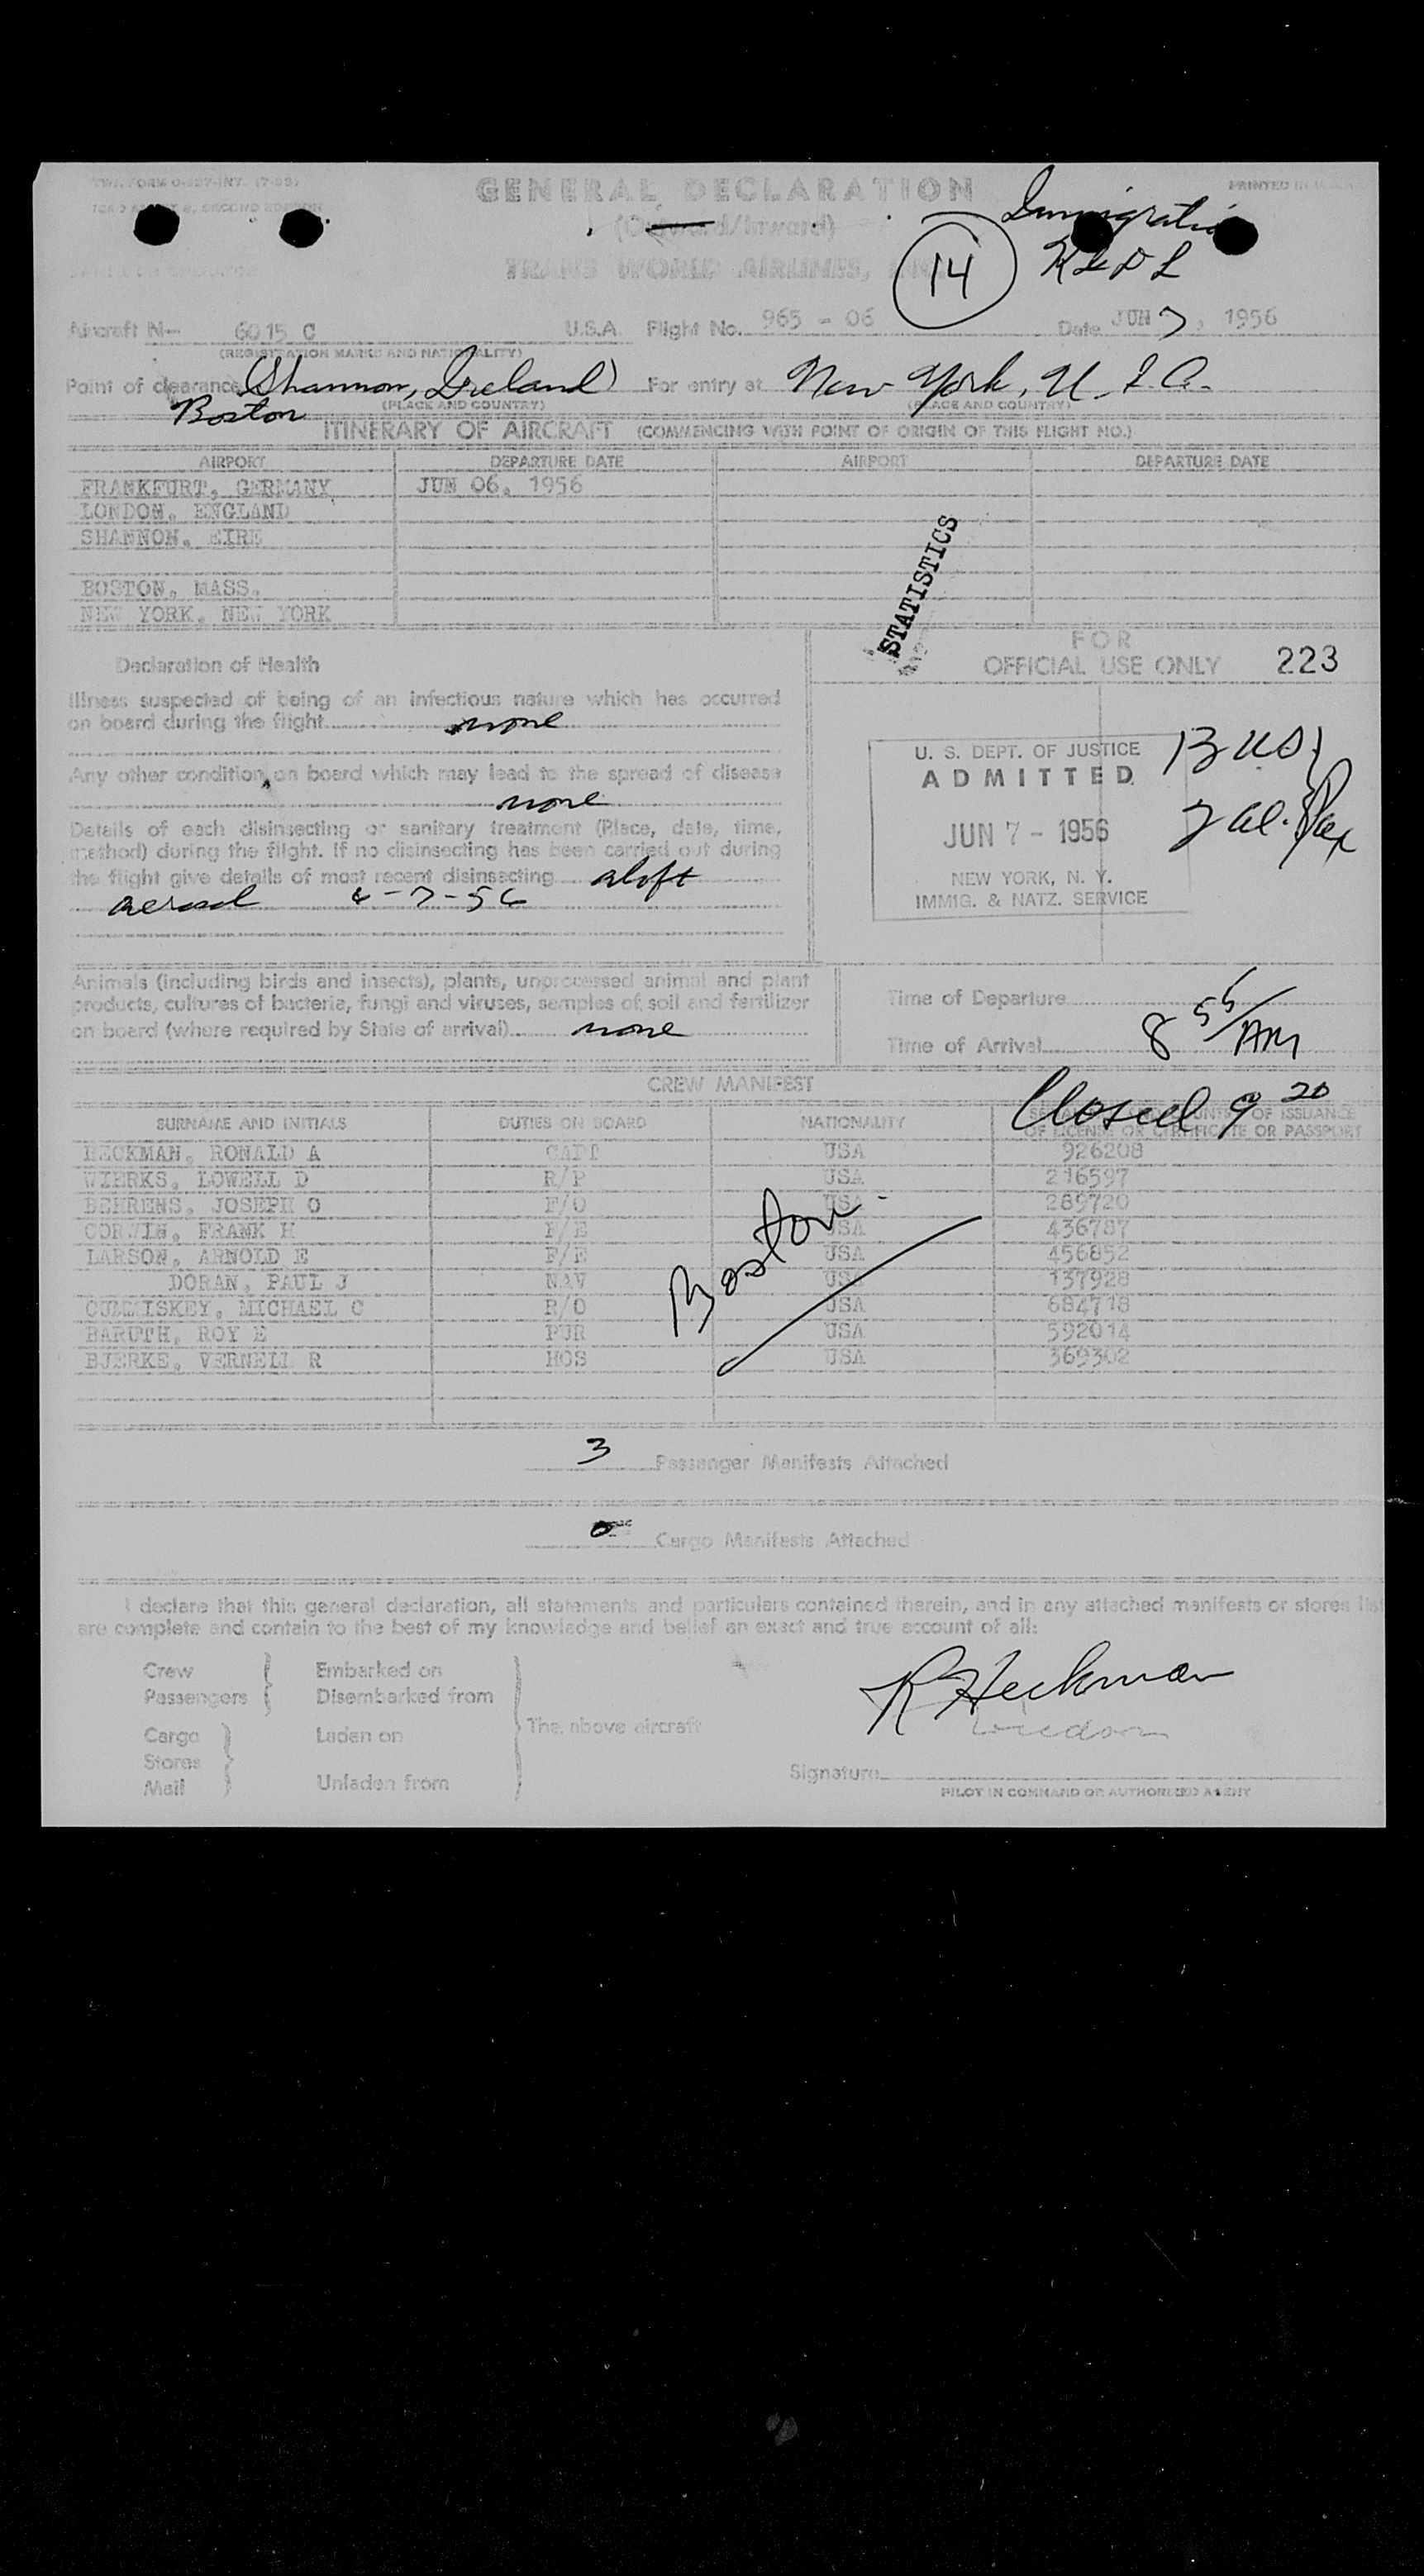 GENERAL DECLARATION
(Outward/Inward)
Immigration
TRANS WORLD AIRLINES,
14
Aircraft N— 6015 C U.S.A. Flight No. 965 - 06 Date JUN 7, 1956
(REGISTRATION MARKS AND NATIONALITY)
Point of clearance (Shannon, Ireland) For entry at New York, U.S.A.
Boston (PLACE AND COUNTRY) (PLACE AND COUNTRY)
ITINERARY OF AIRCRAFT (COMMENCING WITH POINT OF ORIGIN OF THIS FLIGHT NO.)
AIRPORT DEPARTURE DATE AIRPORT DEPARTURE DATE
FRANKFURT, GERMANY JUN 06, 1956
LONDON, ENGLAND
SHANNON, EIRE
BOSTON, MASS.
NEW YORK, NEW YORK
STATISTICS
Declaration of Health
Illness suspected of being of an infectious nature which has occurred
on board during the flight none
Any other condition on board which may lead to the spread of disease
none
Details of each disinsecting or sanitary treatment (Place, date, time,
method) during the flight. If no disinsecting has been carried out during
the flight give details of most recent disinsecting aloft
aerosol 6-7-56
FOR
OFFICIAL USE ONLY 223
U. S. DEPT. OF JUSTICE
ADMITTED
JUN 7 - 1956
NEW YORK, N. Y.
IMMIG. & NATZ. SERVICE
Animals (including birds and insects), plants, unprocessed animal and plant
products, cultures of bacteria, fungi and viruses, samples of soil and fertilizer
on board (where required by State of arrival) none
Time of Departure
Time of Arrival 8 55/AM
CREW MANIFEST
Closed 9 20
SURNAME AND INITIALS DUTIES ON BOARD NATIONALITY OF ISSUANCE
OF LICENSE OR CERTIFICATE OR PASSPORT
HECKMAN, RONALD A CAPT USA 926208
WIERKS, LOWELL D R/P USA 216597
BEHRENS, JOSEPH O F/O USA 289720
CORWIN, FRANK H F/E USA 436787
LARSON, ARNOLD E F/E USA 456852
DORAN, PAUL J NAV USA 137928
CUMMISKEY, MICHAEL C R/O USA 684718
BARUTH, ROY E PUR USA 592014
BJERKE, VERNELL R HOS USA 369302
Boston
3 Passenger Manifests Attached
0 Cargo Manifests Attached
I declare that this general declaration, all statements and particulars contained therein, and in any attached manifests or stores list
are complete and contain to the best of my knowledge and belief an exact and true account of all:
Crew Embarked on
Passengers Disembarked from
Cargo Laden on The above aircraft
Stores
Mail Unladen from
R Heckman
Signature
PILOT IN COMMAND OR AUTHORIZED AGENT